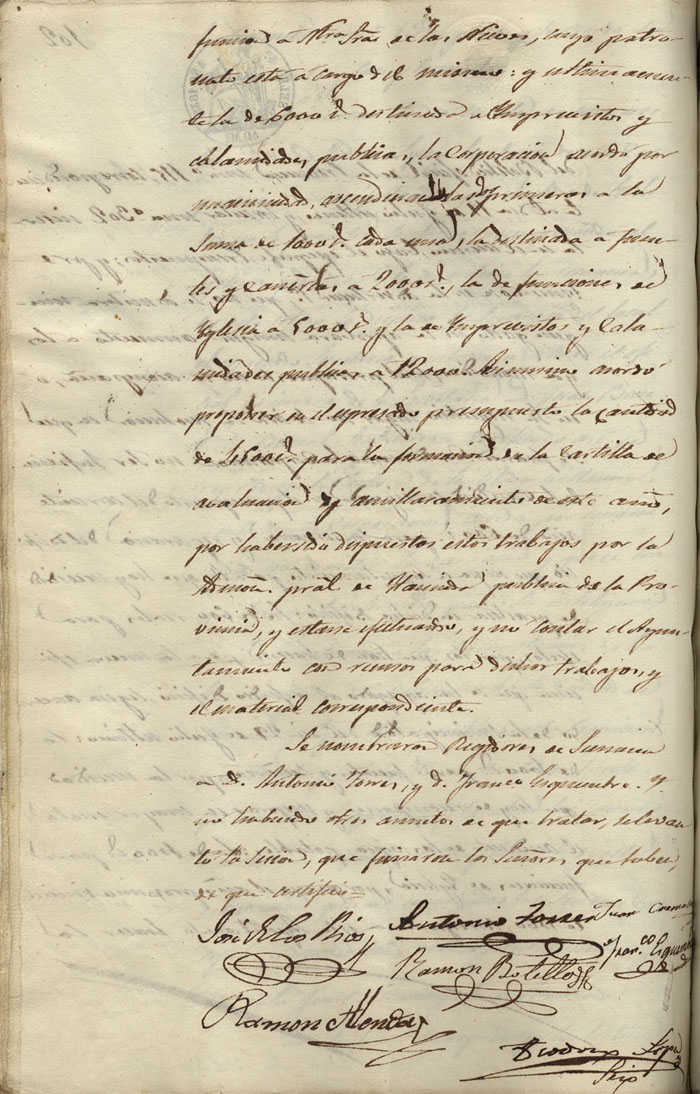 funcion á Ntra Sra de las Nieves, cuyo patro-
nato está á cargo del mismo: y ultimamen-
te la de 6000 r. destinada a Imprevistos y
calamidades publicas, la Corporacion acordó por
unanimidad, ascendiera las primeras a la
suma de 1000 r. cada una, la destinada á fuen-
tes y cañerias, a 2000 r., la de funciones de
Yglesia á 5000 r. y la de Imprevistos y Cala-
midades publicas a 12000. Asimismo acordó
proponer en el espresado presupuesto la cantidad
de 1500 r. para la formacion de la Cartilla de
evaluacion y amillaramiento de este año,
por haberse dispuestos estos trabajos por la
Admon. pral de Hacienda publica de la Pro-
vincia, y estarse efectuando, y no contar el Ayun-
tamiento con recursos para dichos trabajos, y
el material correspondiente.
Se nombraron Regidores de Semana
a D. Antonio Torres, y D. Franco Esquembre. Y
no habiendo otros asuntos de que tratar, se levan-
tó la sesion, que firmaron los Señores que saben,
de que certifico=
José de los Rios
Antonio Torres
Juan
Fran.co
Ramon
Ramon Menda
Srio